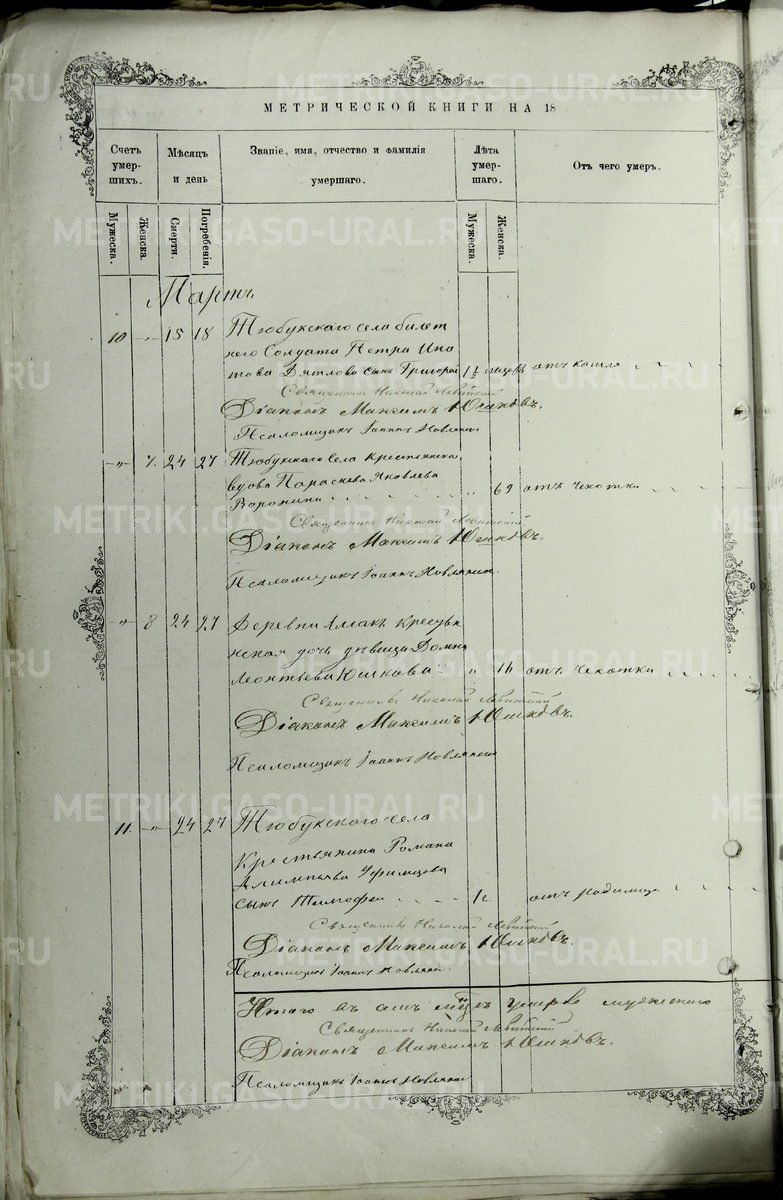 МЕТРИЧЕСКОЙ КНИГИ НА 18
Счетъ умер-шихъ.
Мѣсяцъ и день
Званіе, имя, отчество и фамилія умершаго.
Лѣта умер-шаго.
Отъ чего умеръ.
Мужеска.
Женска.
Смерти.
Погребенія.
Мужеска.
Женска.
Мартъ
10 -„- 15 18 Тюбукскаго села билет
наго Солдата Петра Ипа
това Дятлова сынъ Григорій 1½ отъ кашля
Священникъ Николай Левитскій
Діаконъ Максимъ Юшковъ.
Псаломщикъ Іоаннъ Новлянинъ
-„- 7. 24 27 Тюбукскаго села Крестьянская
вдова Параскева Яковлева
Воронина „ 69 отъ чахотки
Священникъ Николай Левитскій
Діаконъ Максимъ Юшковъ.
Псаломщикъ Іоаннъ Новлянинъ
-„- 8 24 27 Деревни Аллакъ Крестья
нская дочь дѣвица Домна
Леонтьева Юшкова „ 16 отъ чахотки
Священникъ Николай Левитскій
Діаконъ Максимъ Юшковъ.
Псаломщикъ Іоаннъ Новлянинъ
11. -„- 24 27 Тюбукскаго села
Крестьянина Романа
Алимпіева
сынъ Тимофей отъ родимца
Священникъ Николай Левитскій
Діаконъ Максимъ Юшковъ.
Псаломщикъ Іоаннъ Новлянинъ
Итого въ умерло мужескаго
Священникъ Николай Левитскій
Діаконъ Максимъ Юшковъ.
Псаломщикъ Іоаннъ Новлянинъ
METRIKI.GASO-URAL.RU